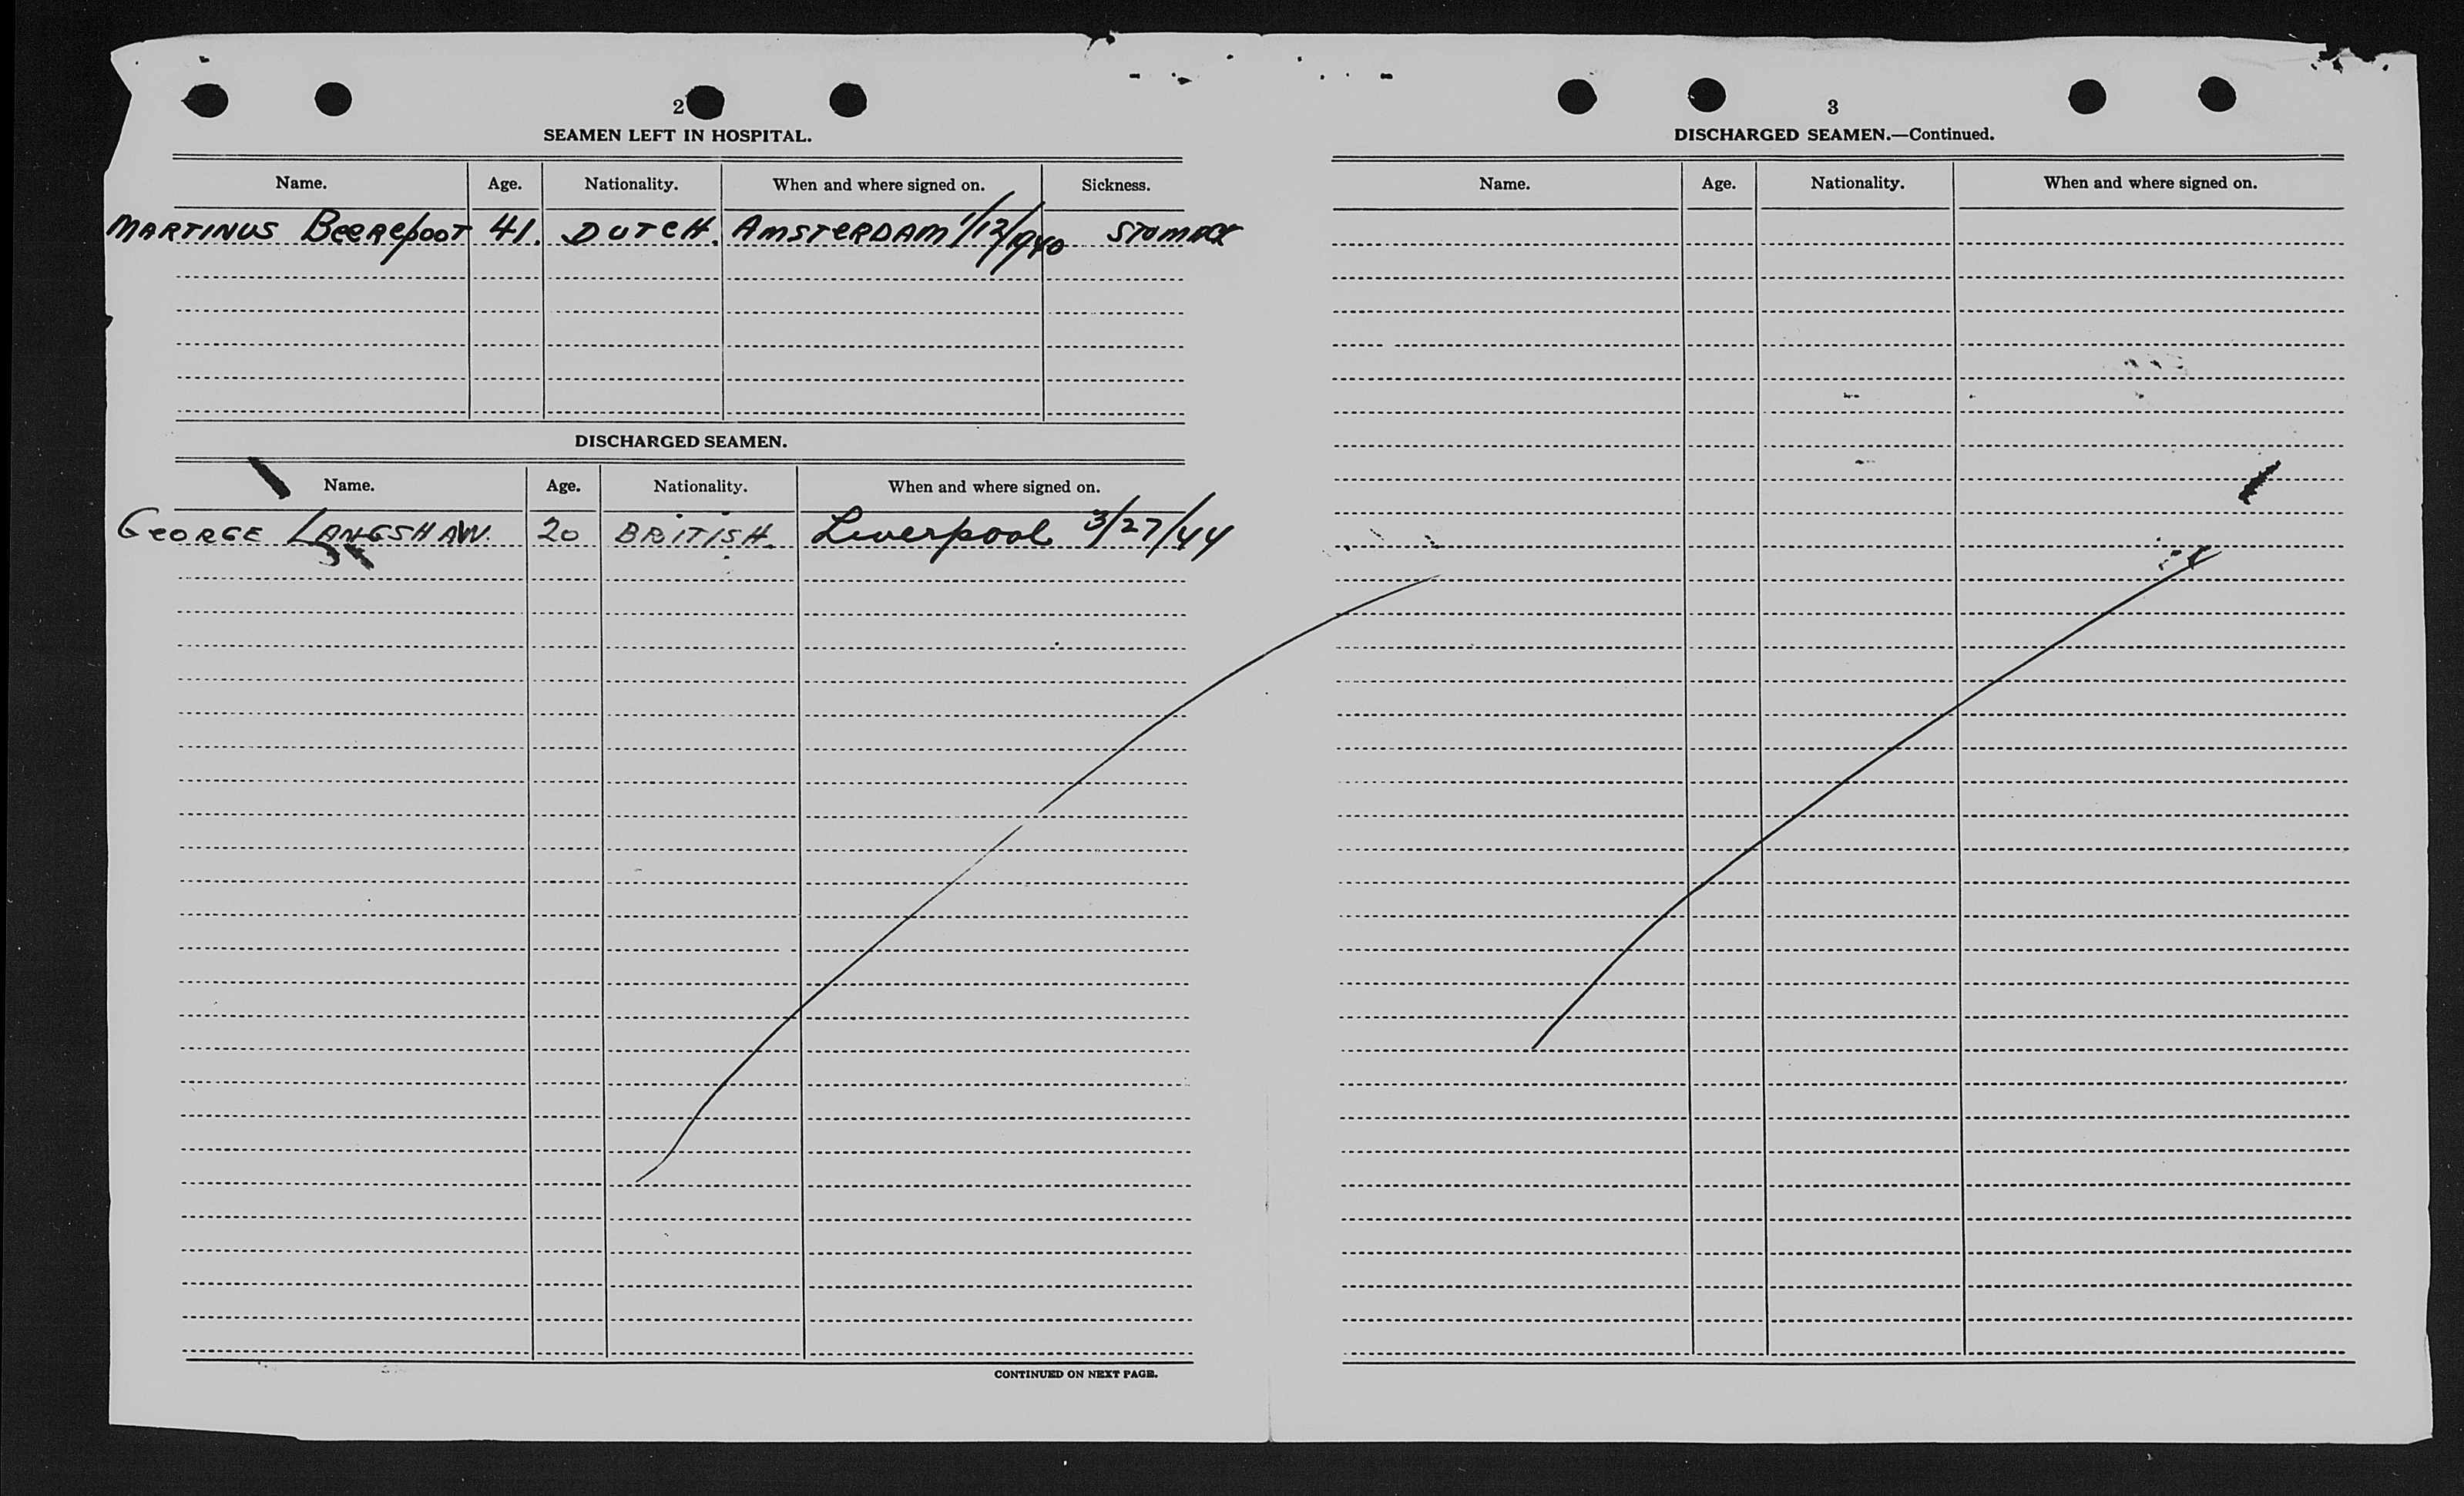 2
SEAMEN LEFT IN HOSPITAL.
Name. Age. Nationality. When and where signed on. Sickness.
MARTINUS BeeRepooT 41. DUTCH. AMSTERDAM 1/12/1940 STOMACK
DISCHARGED SEAMEN.
Name. Age. Nationality. When and where signed on.
GEORGE LANGSHAW. 20 BRITISH. Liverpool 3/27/44
CONTINUED ON NEXT PAGE.
3
DISCHARGED SEAMEN.—Continued.
Name. Age. Nationality. When and where signed on.